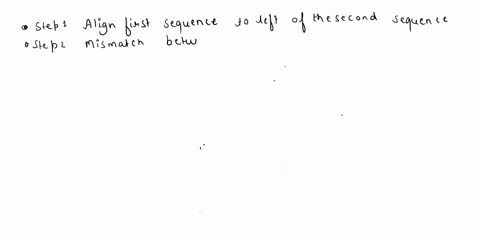 • Step 1 Align first sequence to left of the second sequence
• Step 2 Mismatch betw